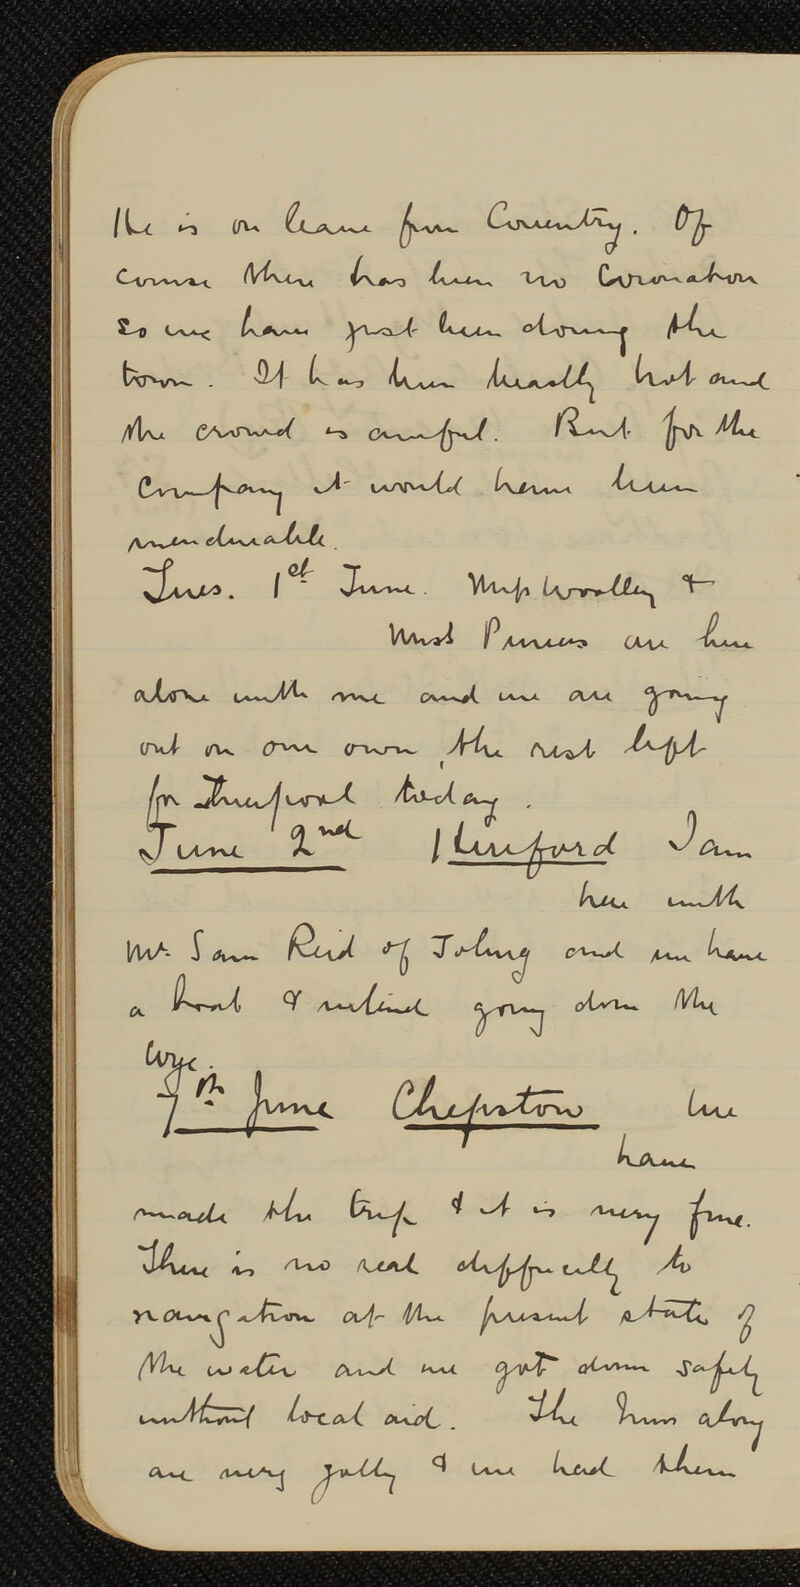 He is on leave from Coventry. Of
course there has been no Coronation
so we have just been doing the
town. It has been beastly hot and
the crowd is awful. But for the
company it would have been
unendurable.
Tues. 1st June. Miss Woolley &
Miss are here
alone with me and we are going
out on our own, the rest left
for Liverpool today.
June 2nd Hereford I am
here with
Mr. Sam Reid of and we have
a boat & intend going down the
Wye.
7th June Chepstow We
have
made the trip & it is very fine.
There is no real difficulty to
navigation at the present state of
the water and we got down safely
without local aid. The Inns along
are very jolly & we had them